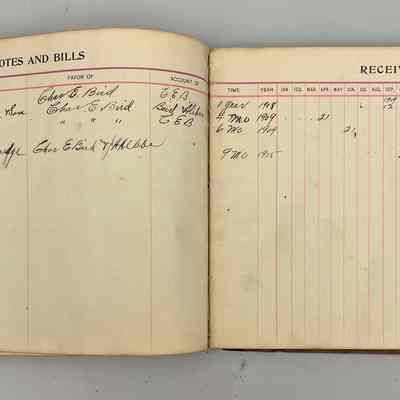 OTES AND BILLS
FAVOR OF ACCOUNT OF
Chas E. Bird C E B
Chas E. Bird Bird
" " " C E B
Chas E Bird
RECEIV
TIME YEAR JAN. FEB. MAR. APR. MAY JUN. JUL. AUG. SEP.
1 year 1908
4 Mo 1909 21
6 Mo 1909 21
9 Mo 1915